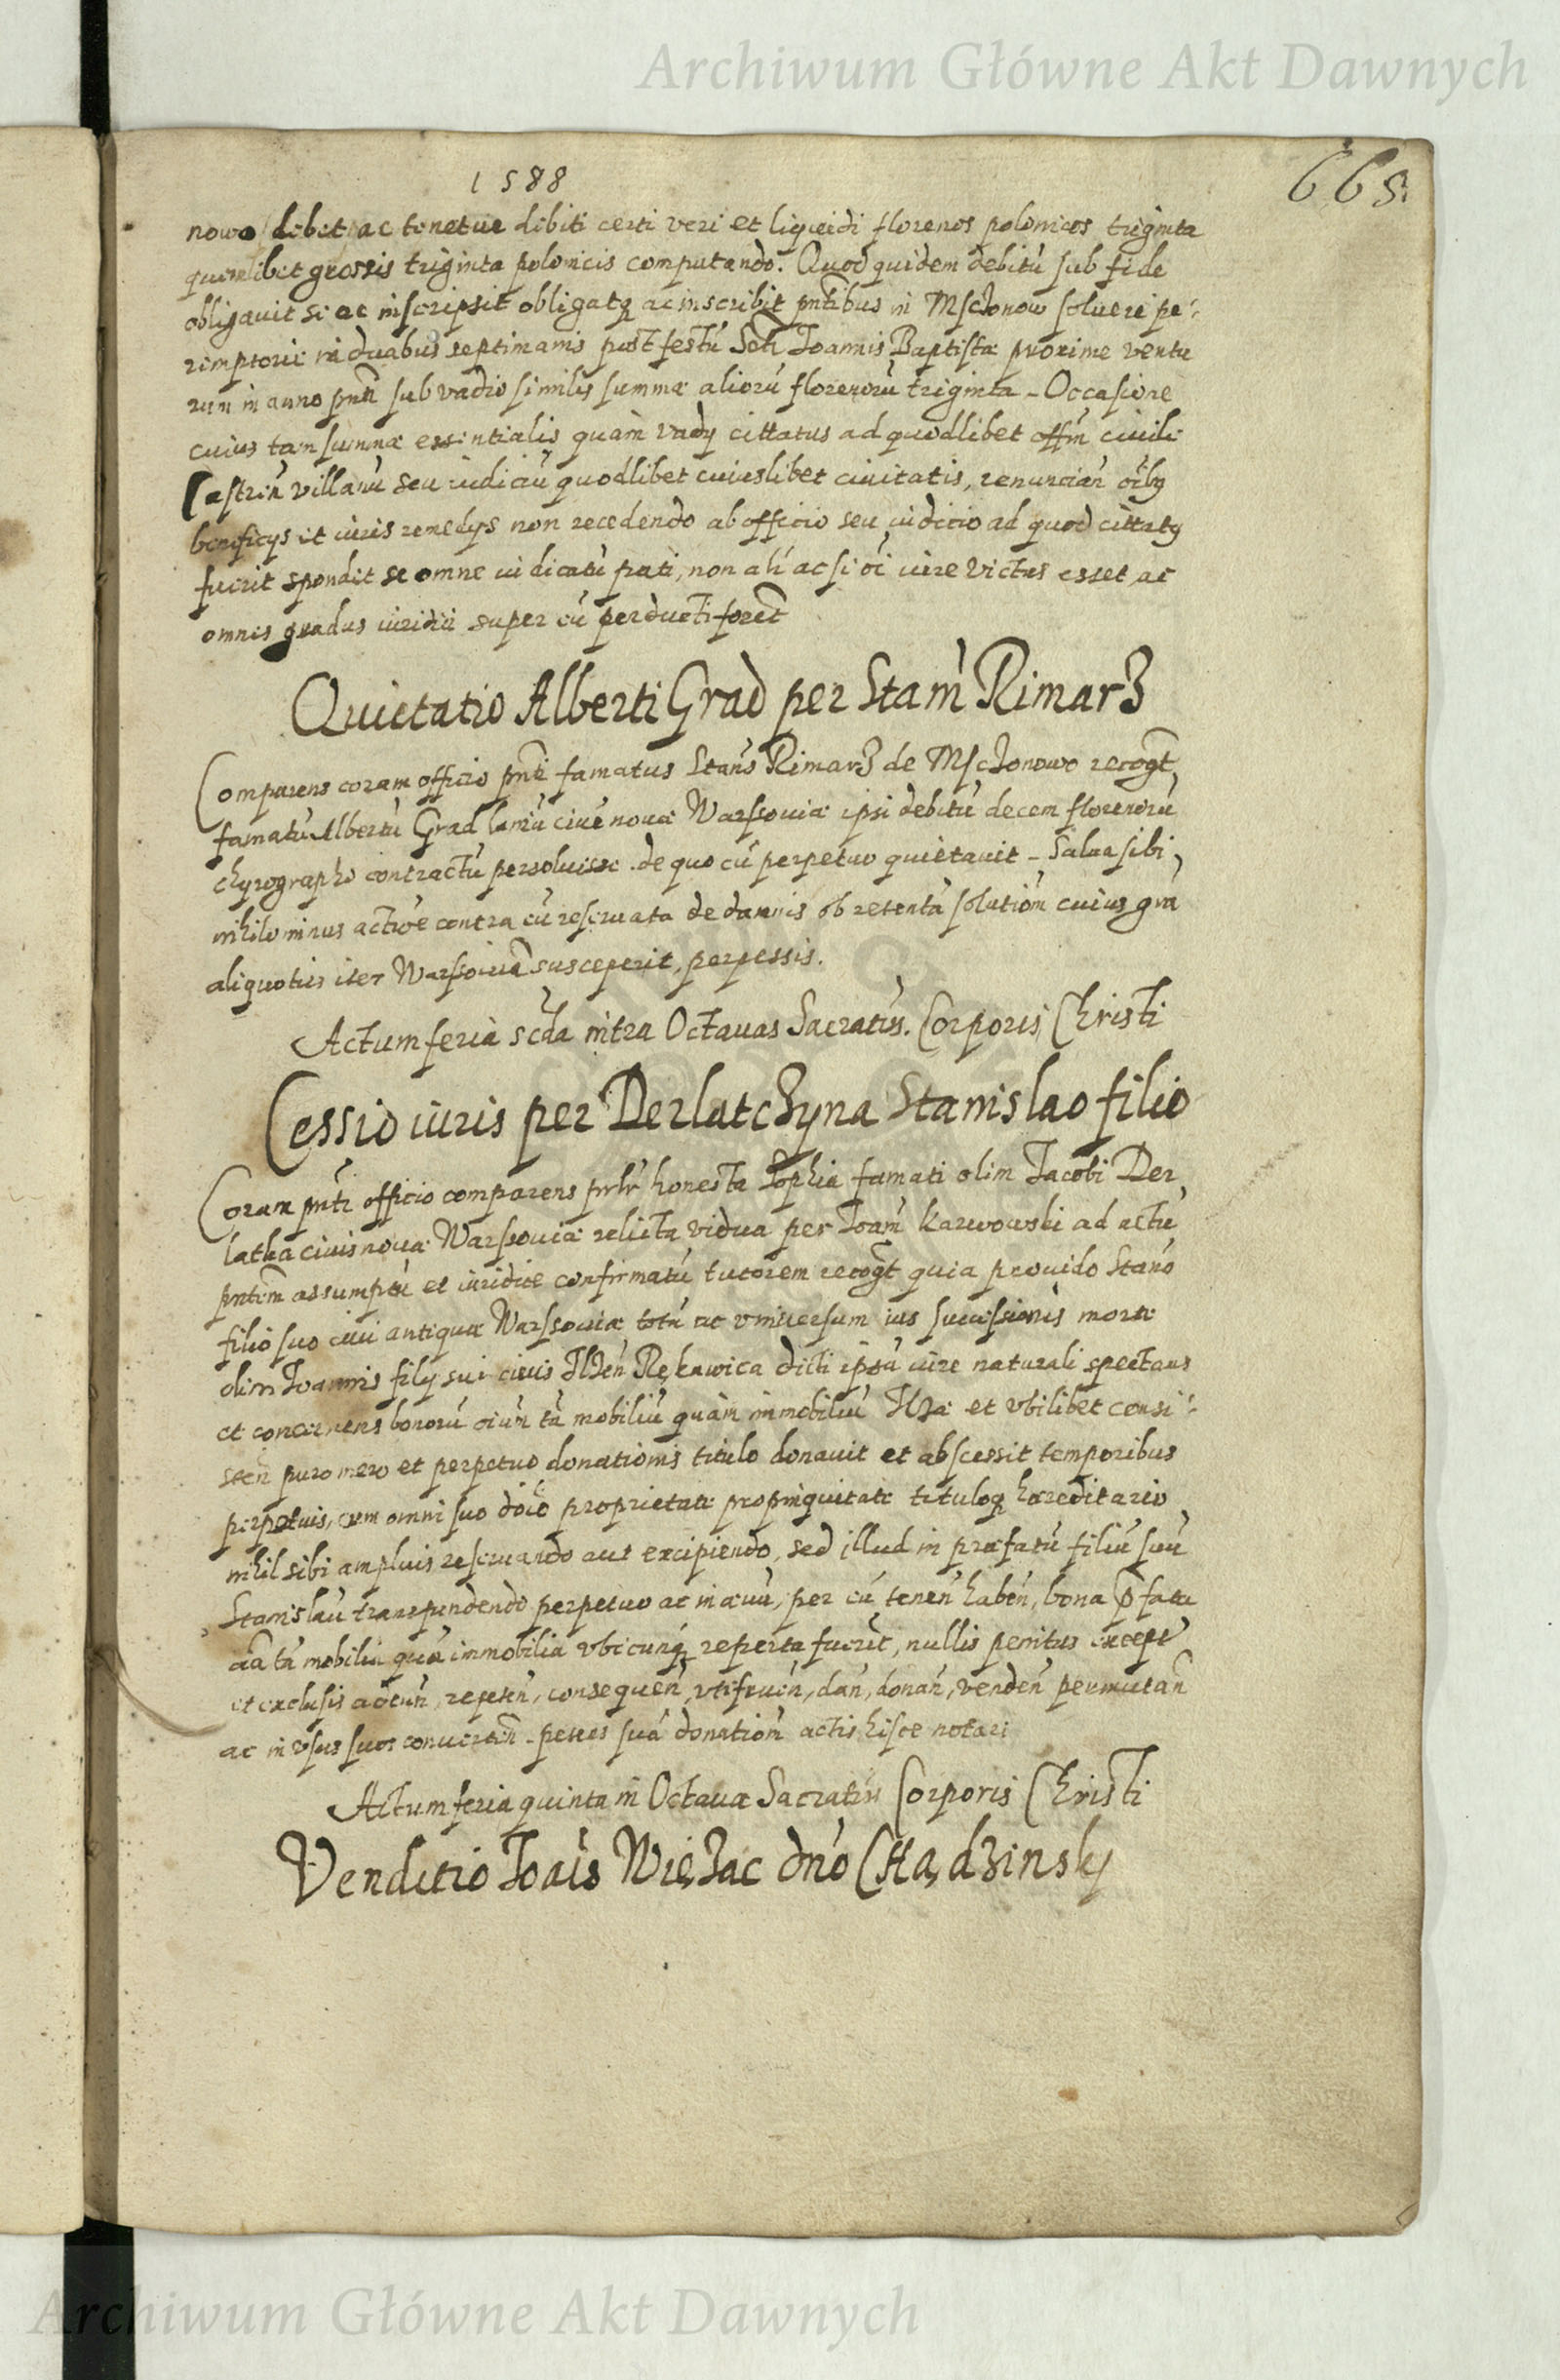 Archiwum Główne Akt Dawnych
665
1588
nowo debet ac tenetur debiti certi veri et liquidi florenos polonicos triginta
quemlibet grossis triginta polonicis computando. Quod quidem debitū sub fide
obligavit se ac inscripsit obligatq ac inscribit pntibus in Mschonow soluere pe-
remptorie in duabus septimanis post festū Scti Joannis Baptistæ proxime ventu
rum in anno pnti sub vadio similis summæ aliorū florenorū triginta - Occasione
cuius tam summæ essentialis quàm vadÿ cittatus ad quodlibet offm ciuile
Castren villanū seu iudiciū quodlibet cuiuslibet ciuitatis, renuncian oibq
beneficÿs et iuris remedÿs non recedendo ab officio seu iudicio ad quod cittatq
fuerit spondit se omne iudicatū pati, non alr ac si oi iure victus esset ac
omnes gradus iuridici super eū perducti forent
Quietatio Alberti Grad per Stam Rimarz
Comparens coram officio pnti famatus Stans Rimarz de Mschonowo recogt
famatū Albertū Grad laniū ciuē nouæ Warssouiæ ipsi debitū decem florenorū
chyrographo contractū persoluisse. de quo eū perpetuo quietauit - Salua sibi
nihilominus actioe contra eū reseruata de damnis ob retentā solutiom cuius gra
aliquoties iter Warsouiā susceperit, perpessis.
Actum feria scda intra Octauas Sacratiss. Corporis Christi
Cessio iuris per Derlatchyna Stanislao filio
Coram pnti officio comparens prlr honesta Sophia famati olim Jacobi Der,
latka ciuis nouæ Warssouiæ relicta vidua per Joam Karwowski ad actū
pntem assumptū et iuridice confirmatū tutorem recogt quia prouido Stano
filio suo ciui antiquæ Warssouiæ totū ac vniuersum ius successionis morte
olim Joannis filÿ sui ciuis Ilden Rękawica dicti ipsā iure naturali spectans
et concernens bonorū oium tā mobiliū quàm immobiliū et vbilibet consi-
sten puro mero et perpetuo donationis titulo donauit et abscessit temporibus
perpetuis, cum omni suo doio proprietate propinquitate tituloq hæreditario
nihil sibi amplius reseruando aut excipiendo, sed illud in præfatū filiū suū
Stanislaū transfundendo perpetuo ac in æuū, per eū tenen haben, bona p fata
oia tā mobilia quā immobilia vbicunq reperta fuerit, nullis penitus except
et exclusis acten, repeten, consequen, vtifruen, dan, donan, venden permutan
ac in vsus suos conuerten - petens suā donatiom actis hisce notari
Actum feria quinta in Octaua Sacratiss Corporis Christi
Venditio Joais dno
Archiwum Główne Akt Dawnych